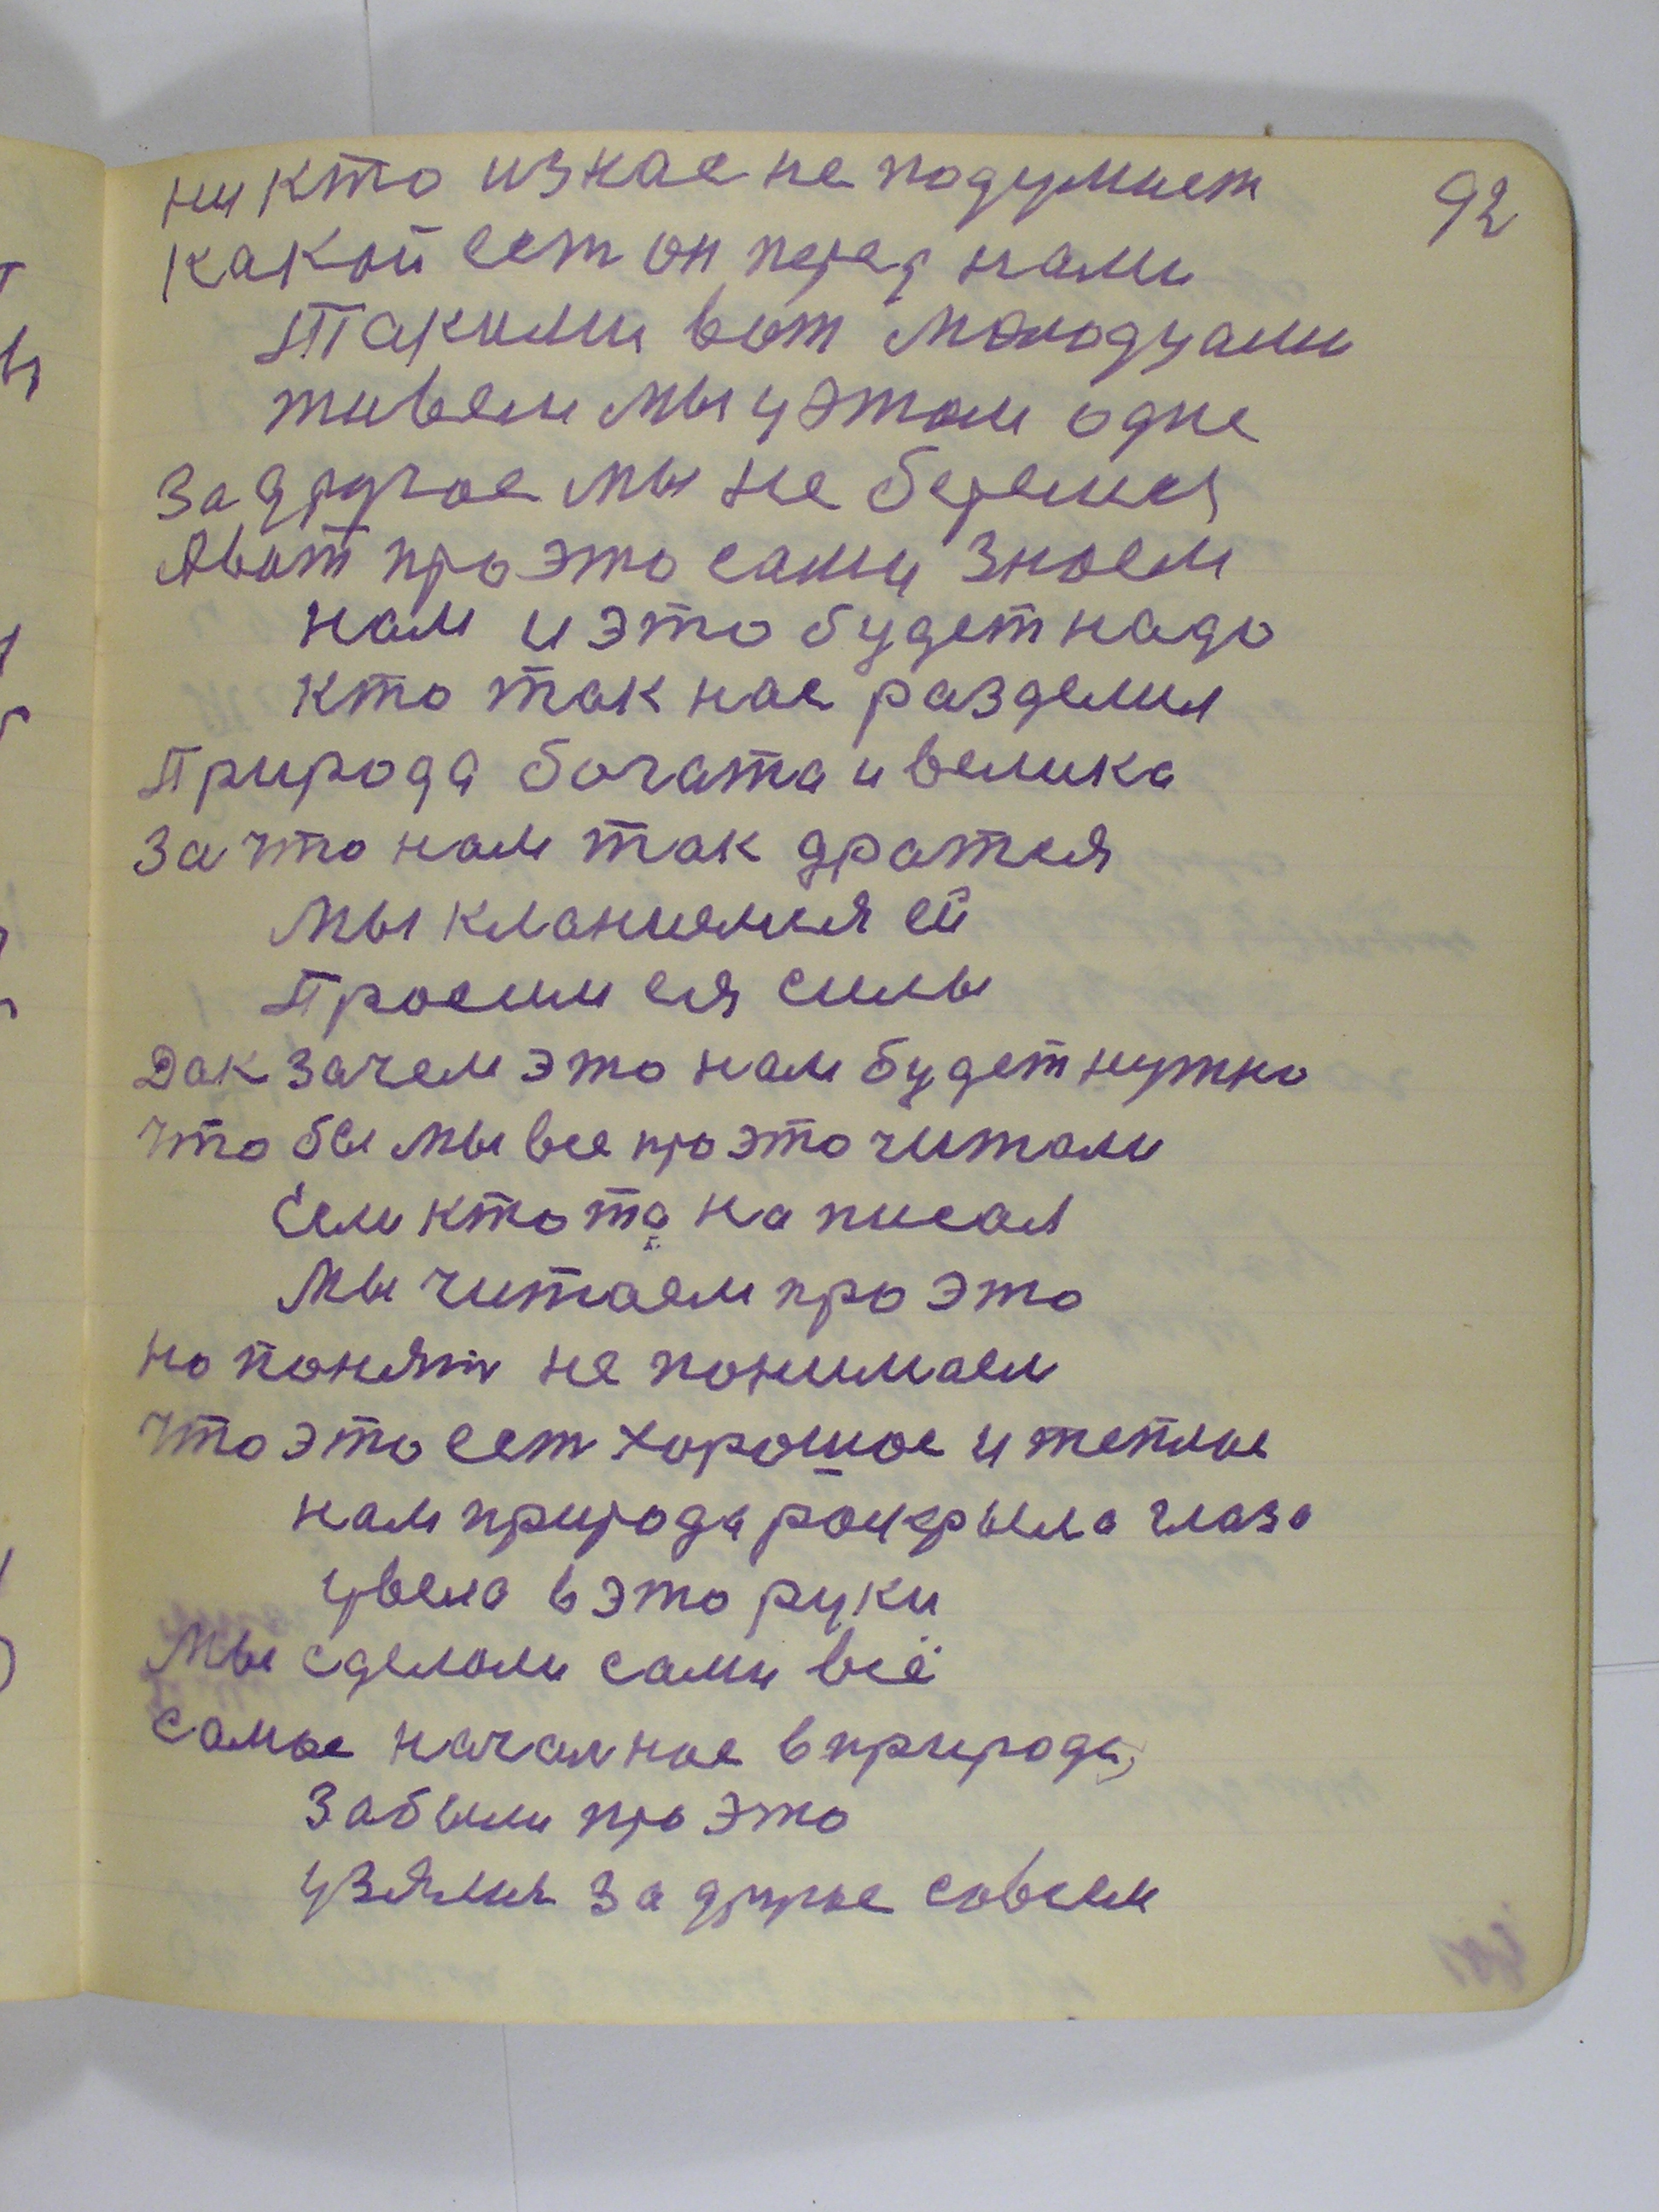 92
ни кто изнас не подумает
какой ест он перед нами
Такими вот молодцами
живем мы у этом одне
За другое мы не беремся
Авот про это сами знаем
нам и это будет надо
кто так нас разделил
Природа богата и велика
За что нам так дратся
мы кланиемся ей
Просим ея силы
Дак зачем это нам будет нужно
что бы мы все про это читали
Если ктото написал
Мы читаем про это
но понят не понимаем
что это ест хорошое и теплое
нам природа роскрыла глаза
увела в это руки
Мы сделали сами всё
самое началное в природе,
Забыли про это
узялись за другое совсем